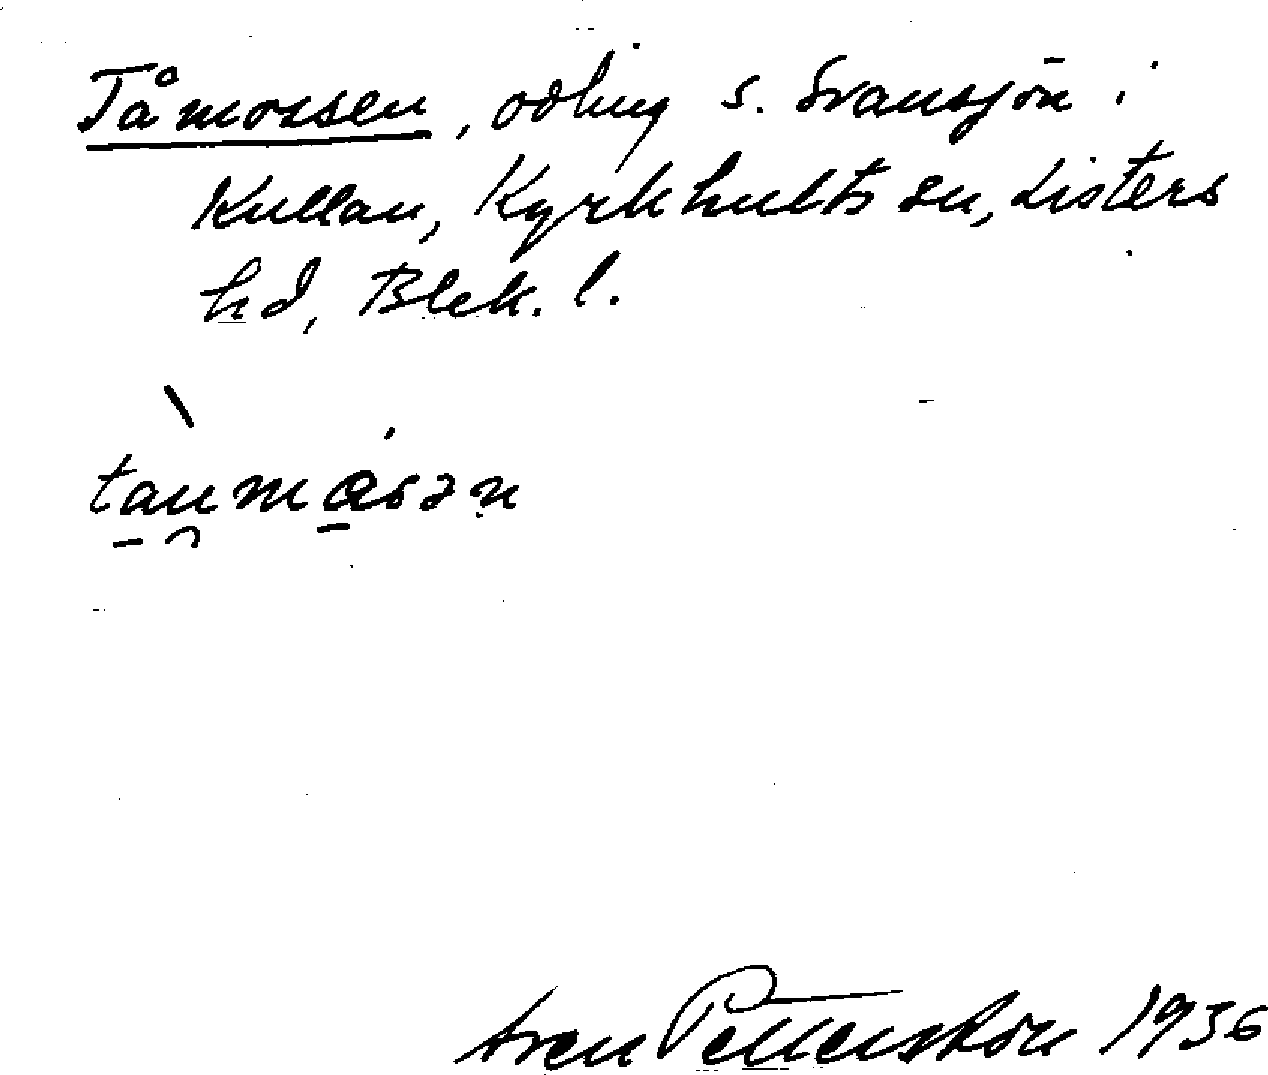 Tåmossen, odling s. Svansjön i
Kullan, Kyrkhults sn, Listers
hd, Blek. l.
Sven Petterson 1936